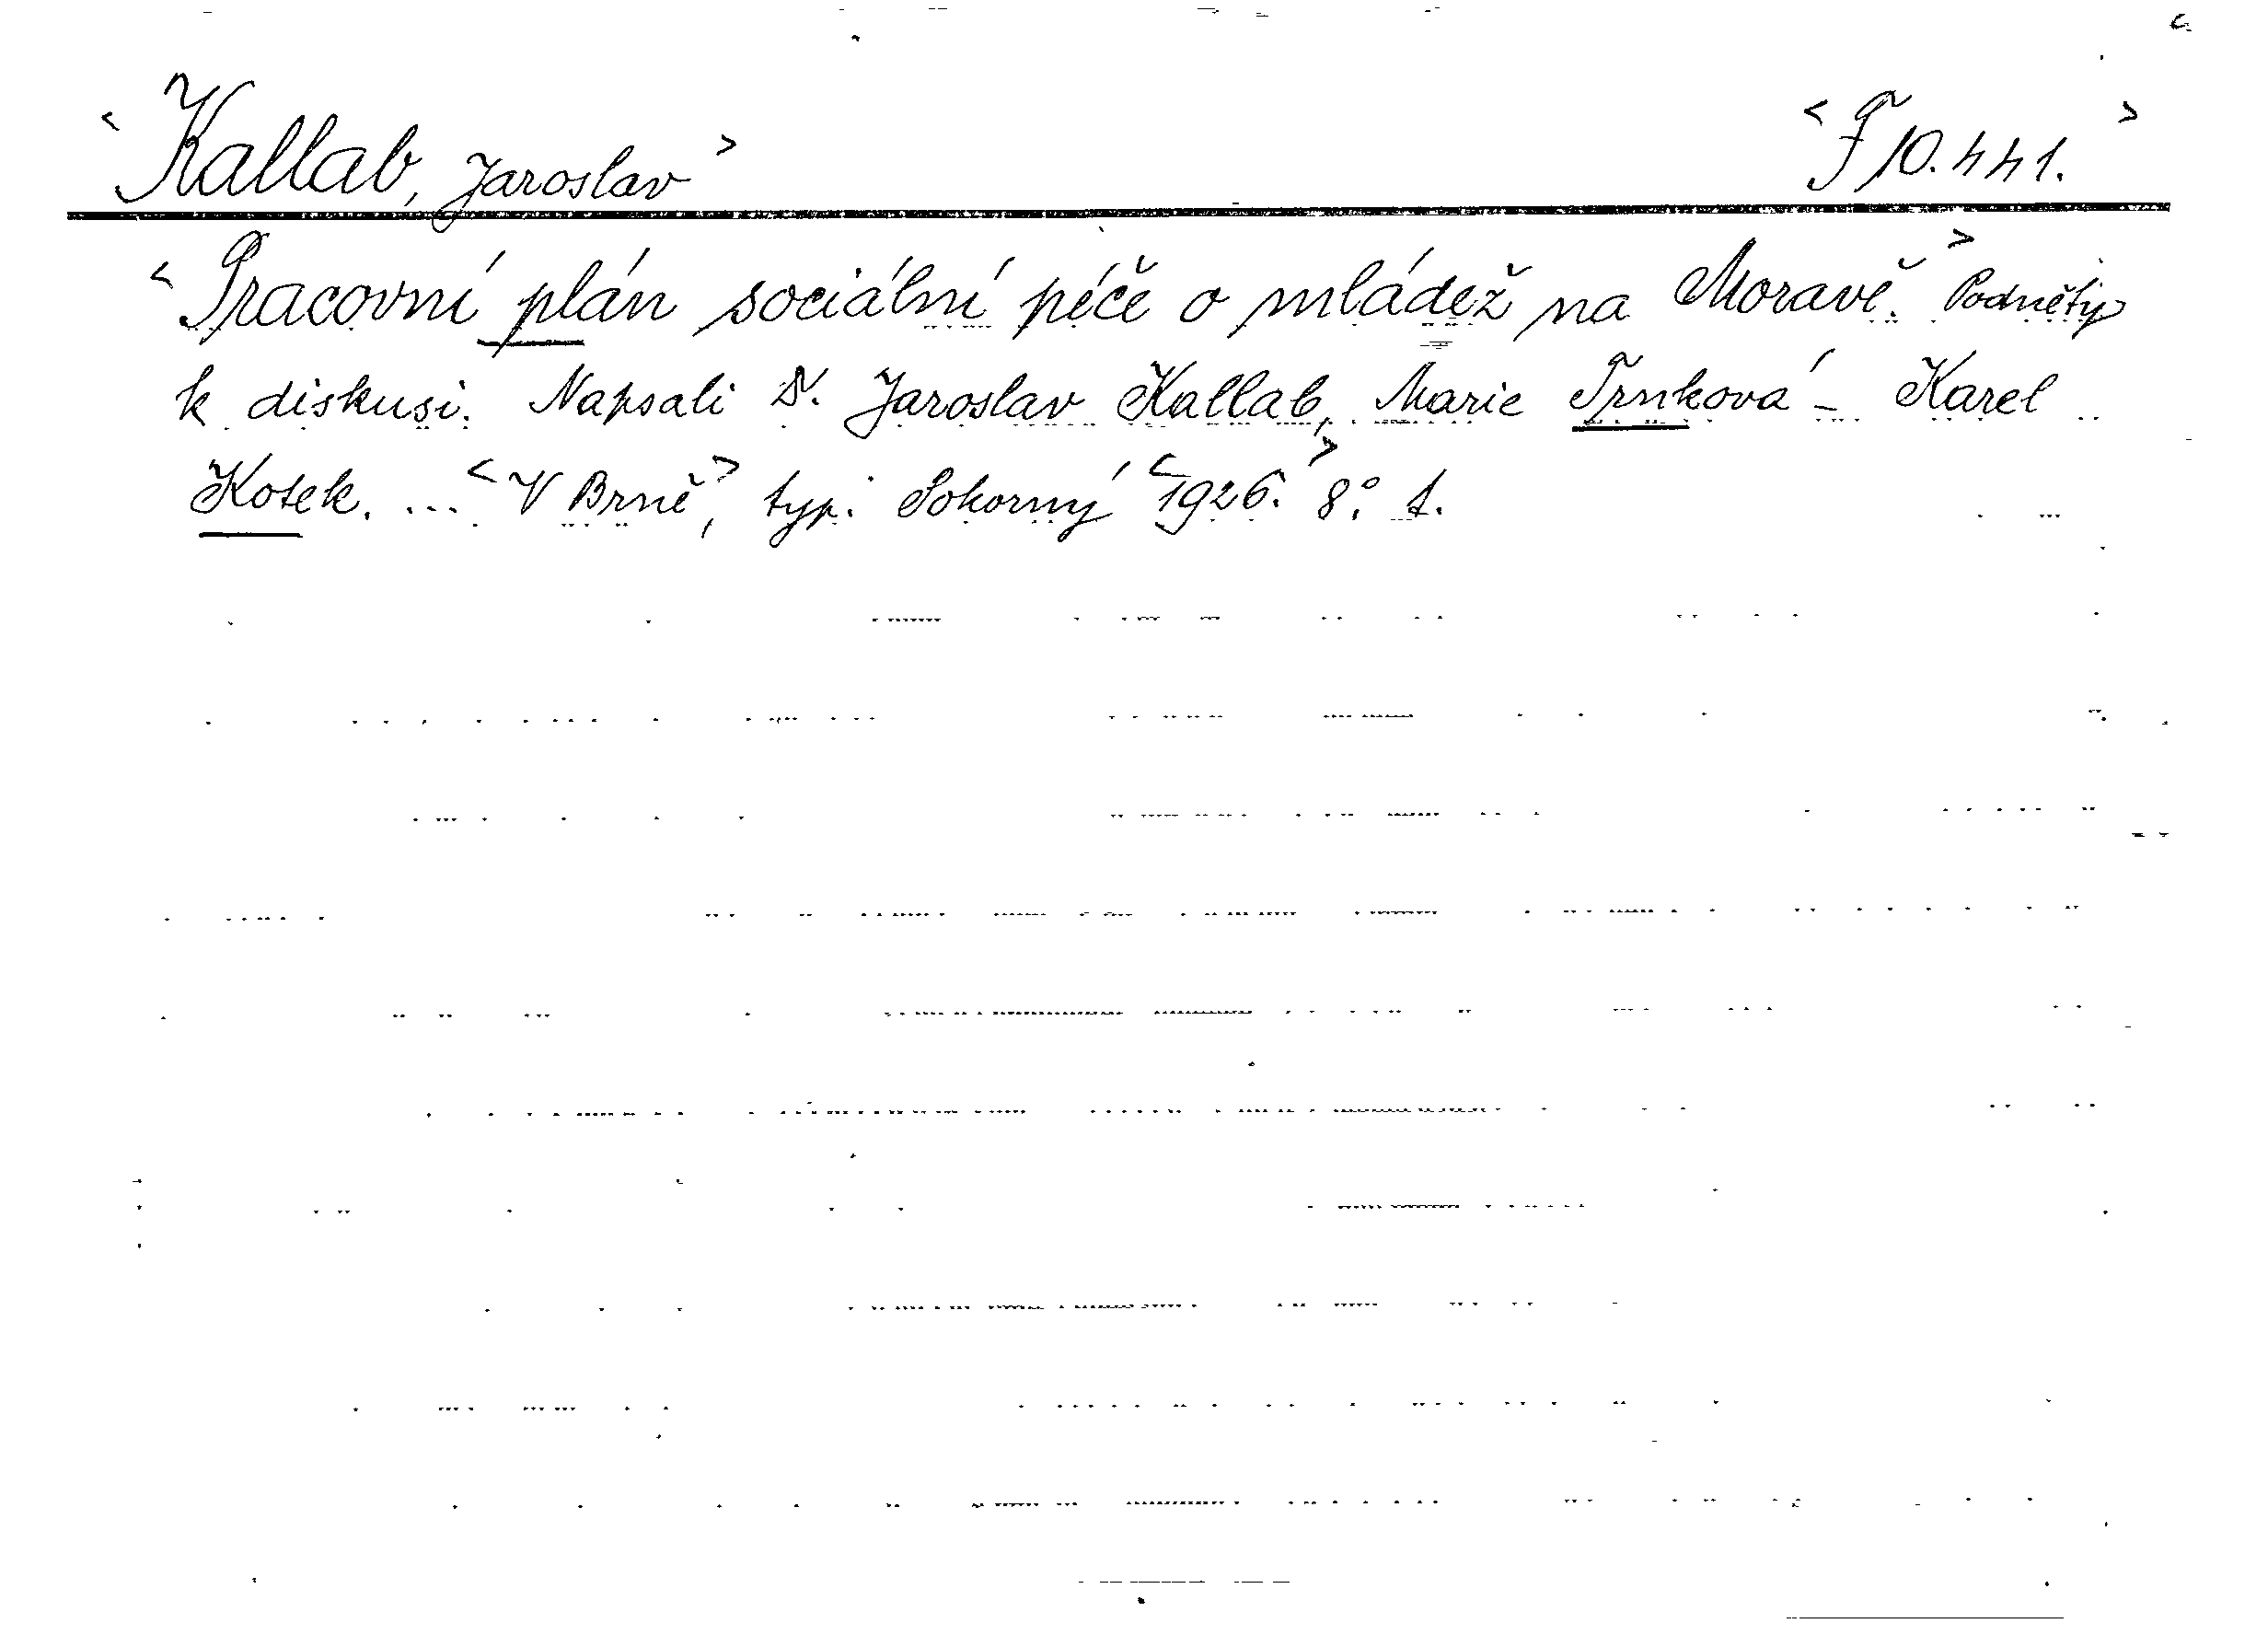 <Kallab, Jaroslav> <F 10.441.>
<Pracovní plán sociální péče o mládež na Moravě.> Podněty
k diskusi. Napsali Dr. Jaroslav Kallab, Marie Trnková - Karel
Kotek. ... <V Brně>, typ. Pokorný <1926.> 8°. 1.